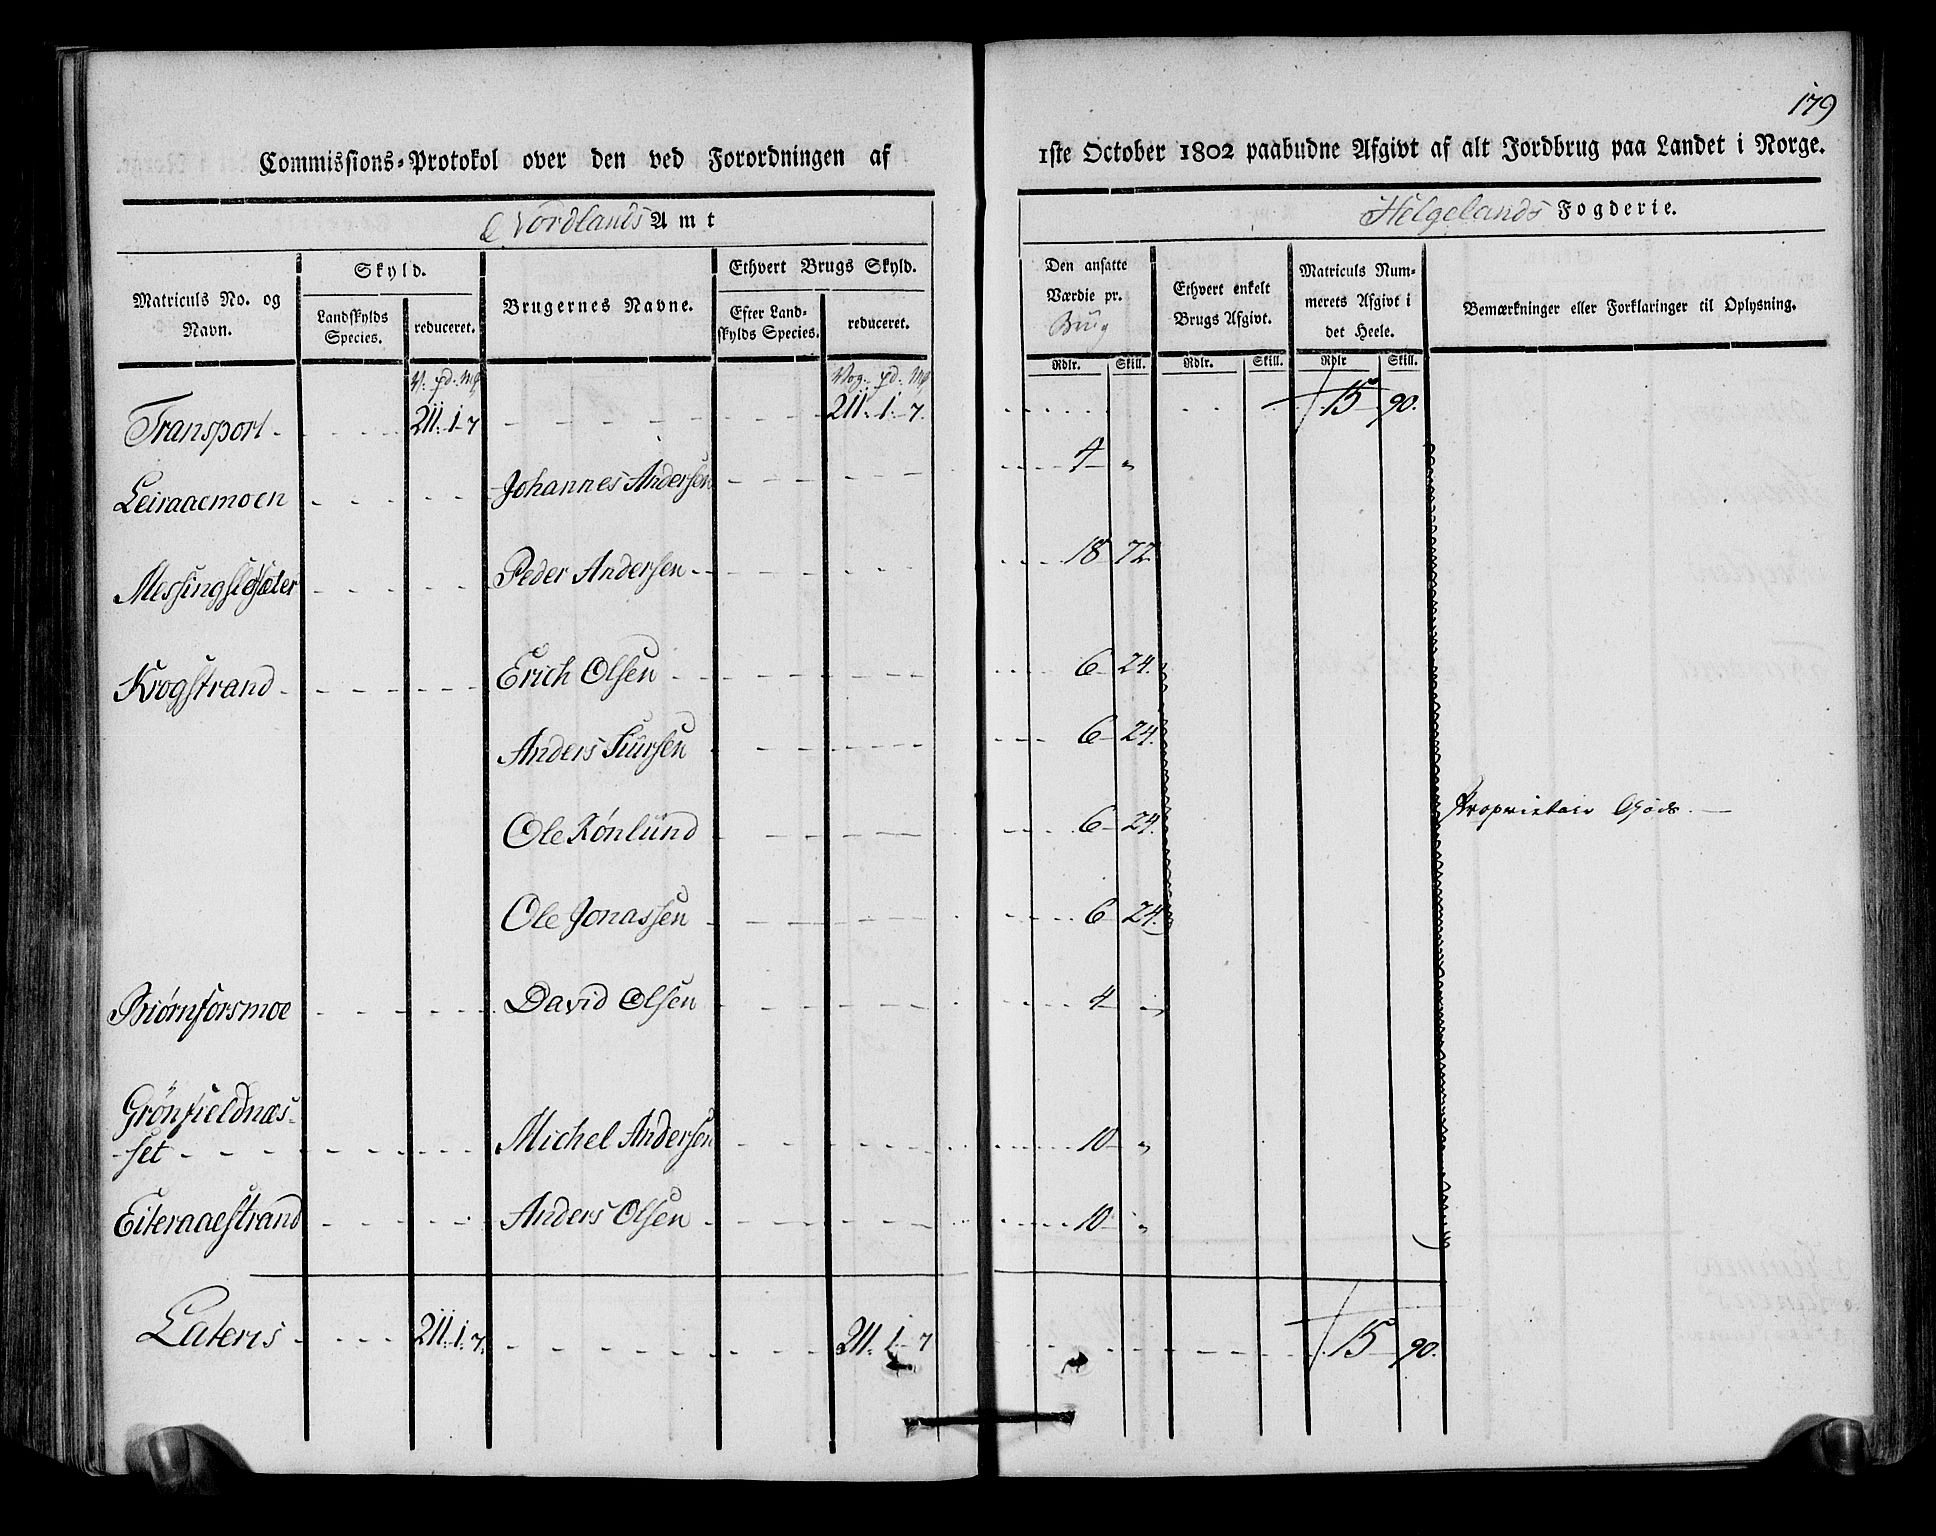 179
Commissions-Protokol over den ved Forordningen af 1ste October 1802 paabudne Afgivt af alt Jordbrug paa Landet i Norge.
Nordlands Amt Helgelands Fogderie.
Matriculs No. og Navn.
Skyld.
Landskylds Species.
reduceret.
Brugernes Navne.
Ethvert Brugs Skyld.
Efter Landskylds Species.
reduceret.
Den ansatte Værdie pr. Brug
Ethvert enkelt Brugs Afgivt.
Matriculs Nummerets Afgivt i det Heele.
Bemærkninger eller Forklaringer til Oplysning.
Rdlr. Skill. Rdlr. Skill. Rdlr Skill.
V. pd. Mk Vog. pd. Mk
Transport 211. 1. 7 211. 1. 7. 15 90.
Leiraaemoen Johannes Andersen 4 "
Messingslesæter Peder Andersen 18 72.
Krogstrand Erich Olsen 6 24.
Anders Siursen 6 24.
Ole Rönlund 6 24. Proprietair Gods
Ole Jonassen 6 24.
Biørnforsmoe David Olsen 4 "
Grönfieldnæs-
set Michel Andersen 10 "
Eiteraaestrand Anders Olsen 10 "
Lateris 211. 1. 7. 211. 1. 7 15 90.